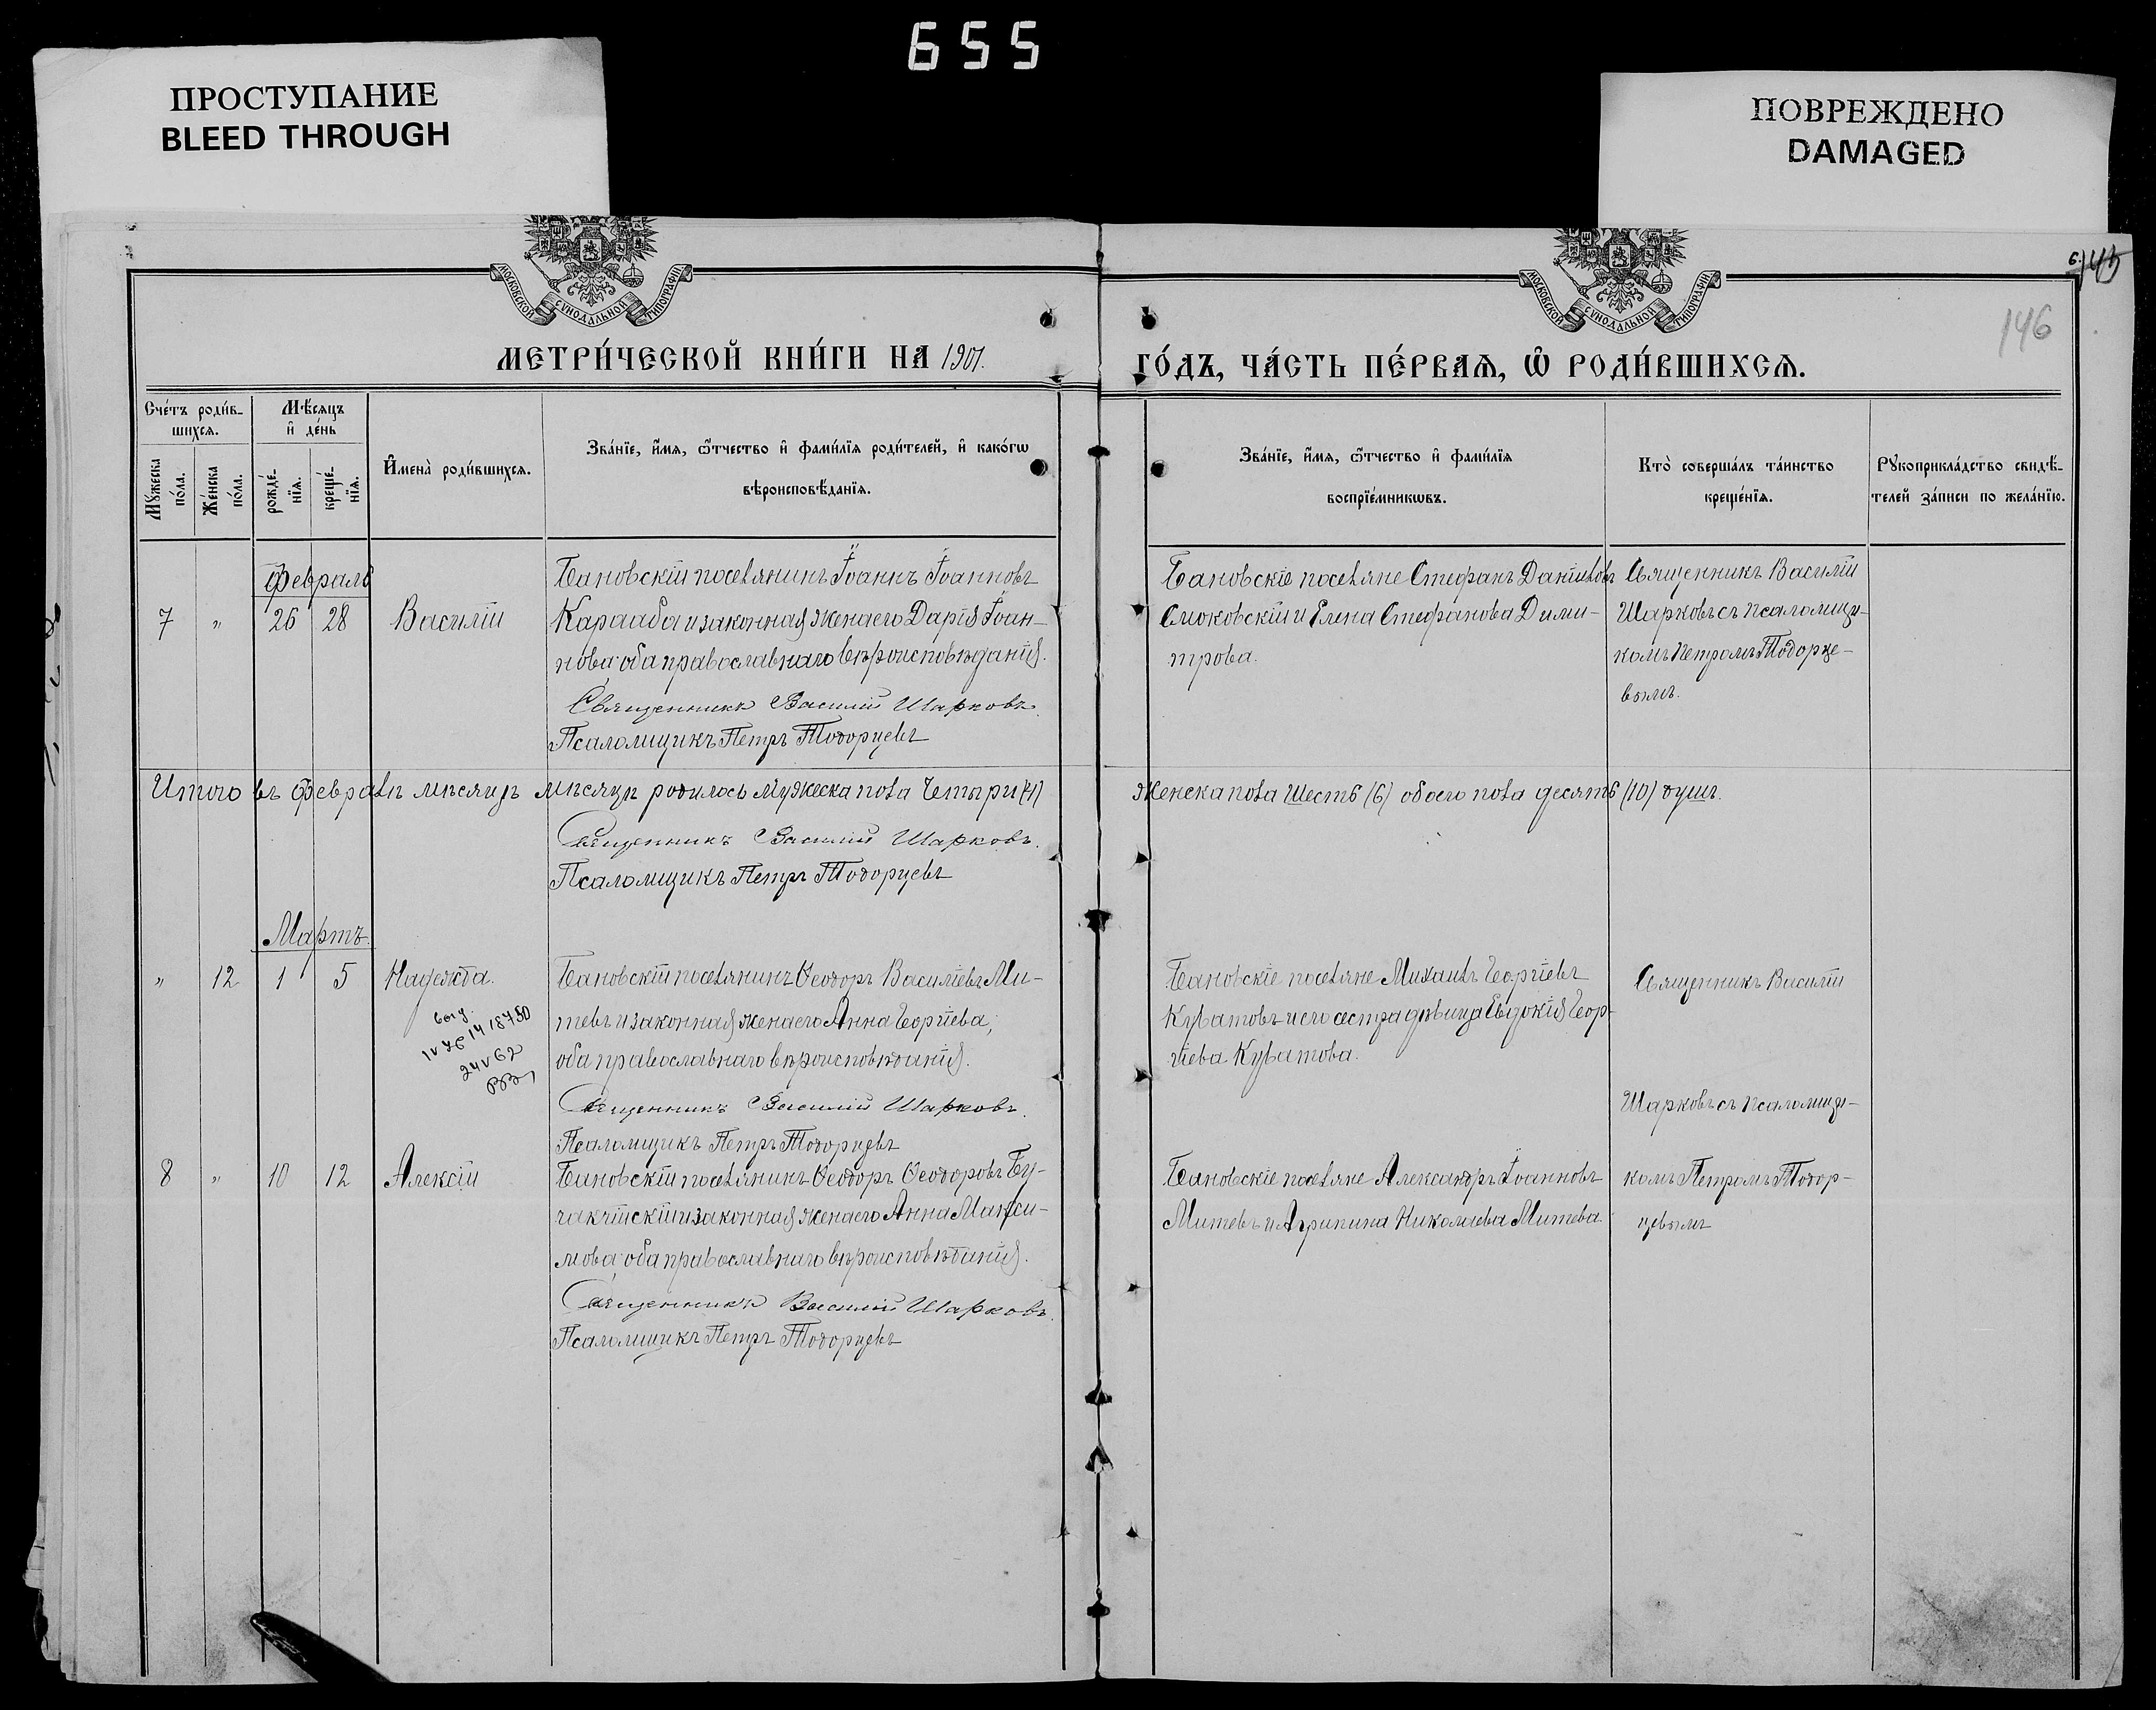 655
ПРОСТУПАНИЕ
BLEED THROUGH
ПОВРЕЖДЕНО
DAMAGED
МОСКОВСКОЙ СѴНОДАЛЬНОЙ ТИПОГРАФІИ
МОСКОВСКОЙ СѴНОДАЛЬНОЙ ТИПОГРАФІИ
6.
145
146
МЕТРИ́ЧЕСКОЙ КНИ́ГИ НА 1901.
ГО́ДЪ, ЧА́СТЬ ПЕ́РВАѦ, Ѽ РОДИ́ВШИХСѦ.
Сче́тъ роди́в-
шихсѧ.
Мꙋ́жеска
по́ла.
Же́нска
по́ла.
Мѣ́сяцъ
и҆ де́нь
рожде́-
нїѧ.
креще́-
нїѧ.
И҆мена̀ роди́вшихсѧ.
Зва́нїе, и҆́мѧ, ѻ҆́тчество и҆ фами́лїѧ роди́телей, и҆ како́гѡ
вѣроисповѣ́данїѧ.
Зва́нїе, и҆́мѧ, ѻ҆́тчество и҆ фами́лїѧ
воспрїе́мникѡвъ.
Кто̀ соверша́лъ та́инство
креще́нїѧ.
Рꙋкоприкла́дство свидѣ́-
телей за́писи по жела́нїю.
Февраль
7 " 26 28 Василій
Бановскій поселянинъ Іоаннъ Іоанновъ
Караабаи законная жена его Дарія Іоан-
нова оба православнаго вѣроисповѣданія.
Священникъ Василій Шарковъ.
Псаломщикъ Петръ Тодорцевъ
Бановскіе поселяне Стефанъ Даніиловъ
Смоковскій и Елена Стефанова Дими-
трова.
Священникъ Василій
Шарковъ съ псаломщи-
комъ Петромъ Тодорце-
вымъ.
Итого въ Февралѣ мѣсяцѣ мѣсяцѣ родилось мужеска пола Четыри (4)
Женска пола Шесть (6) обоего пола десять (10) душъ.
Священникъ Василій Шарковъ.
Псаломщикъ Петръ Тодорцевъ
Мартъ.
" 12 1 5 Надежда.
24 V 62
Бановскій поселянинъ Ѳеодоръ Василіевъ Ми-
тевъ и законная жена его Анна Георгіева,
оба православнаго вѣроисповѣданія.
Священникъ Василій Шарковъ.
Псаломщикъ Петръ Тодорцевъ
Бановскіе поселяне Михаилъ Георгіевъ
Кулатовъ и его сестра дѣвица Евдокія Геор-
гіева Кулатова.
Священникъ Василій
Шарковъ съ псаломщи-
8 " 10 12 Алексій
Бановскій поселянинъ Ѳеодоръ Ѳеодоровъ Бу-
чакчійскій и законная жена его Анна Макси-
мова оба православнаго вѣроисповѣданія.
Священникъ Василій Шарковъ.
Псаломщикъ Петръ Тодорцевъ
Бановскіе поселяне Александръ Іоанновъ
Митевъ и Агрипина Николаева Митева.
комъ Петромъ Тодор-
цевымъ